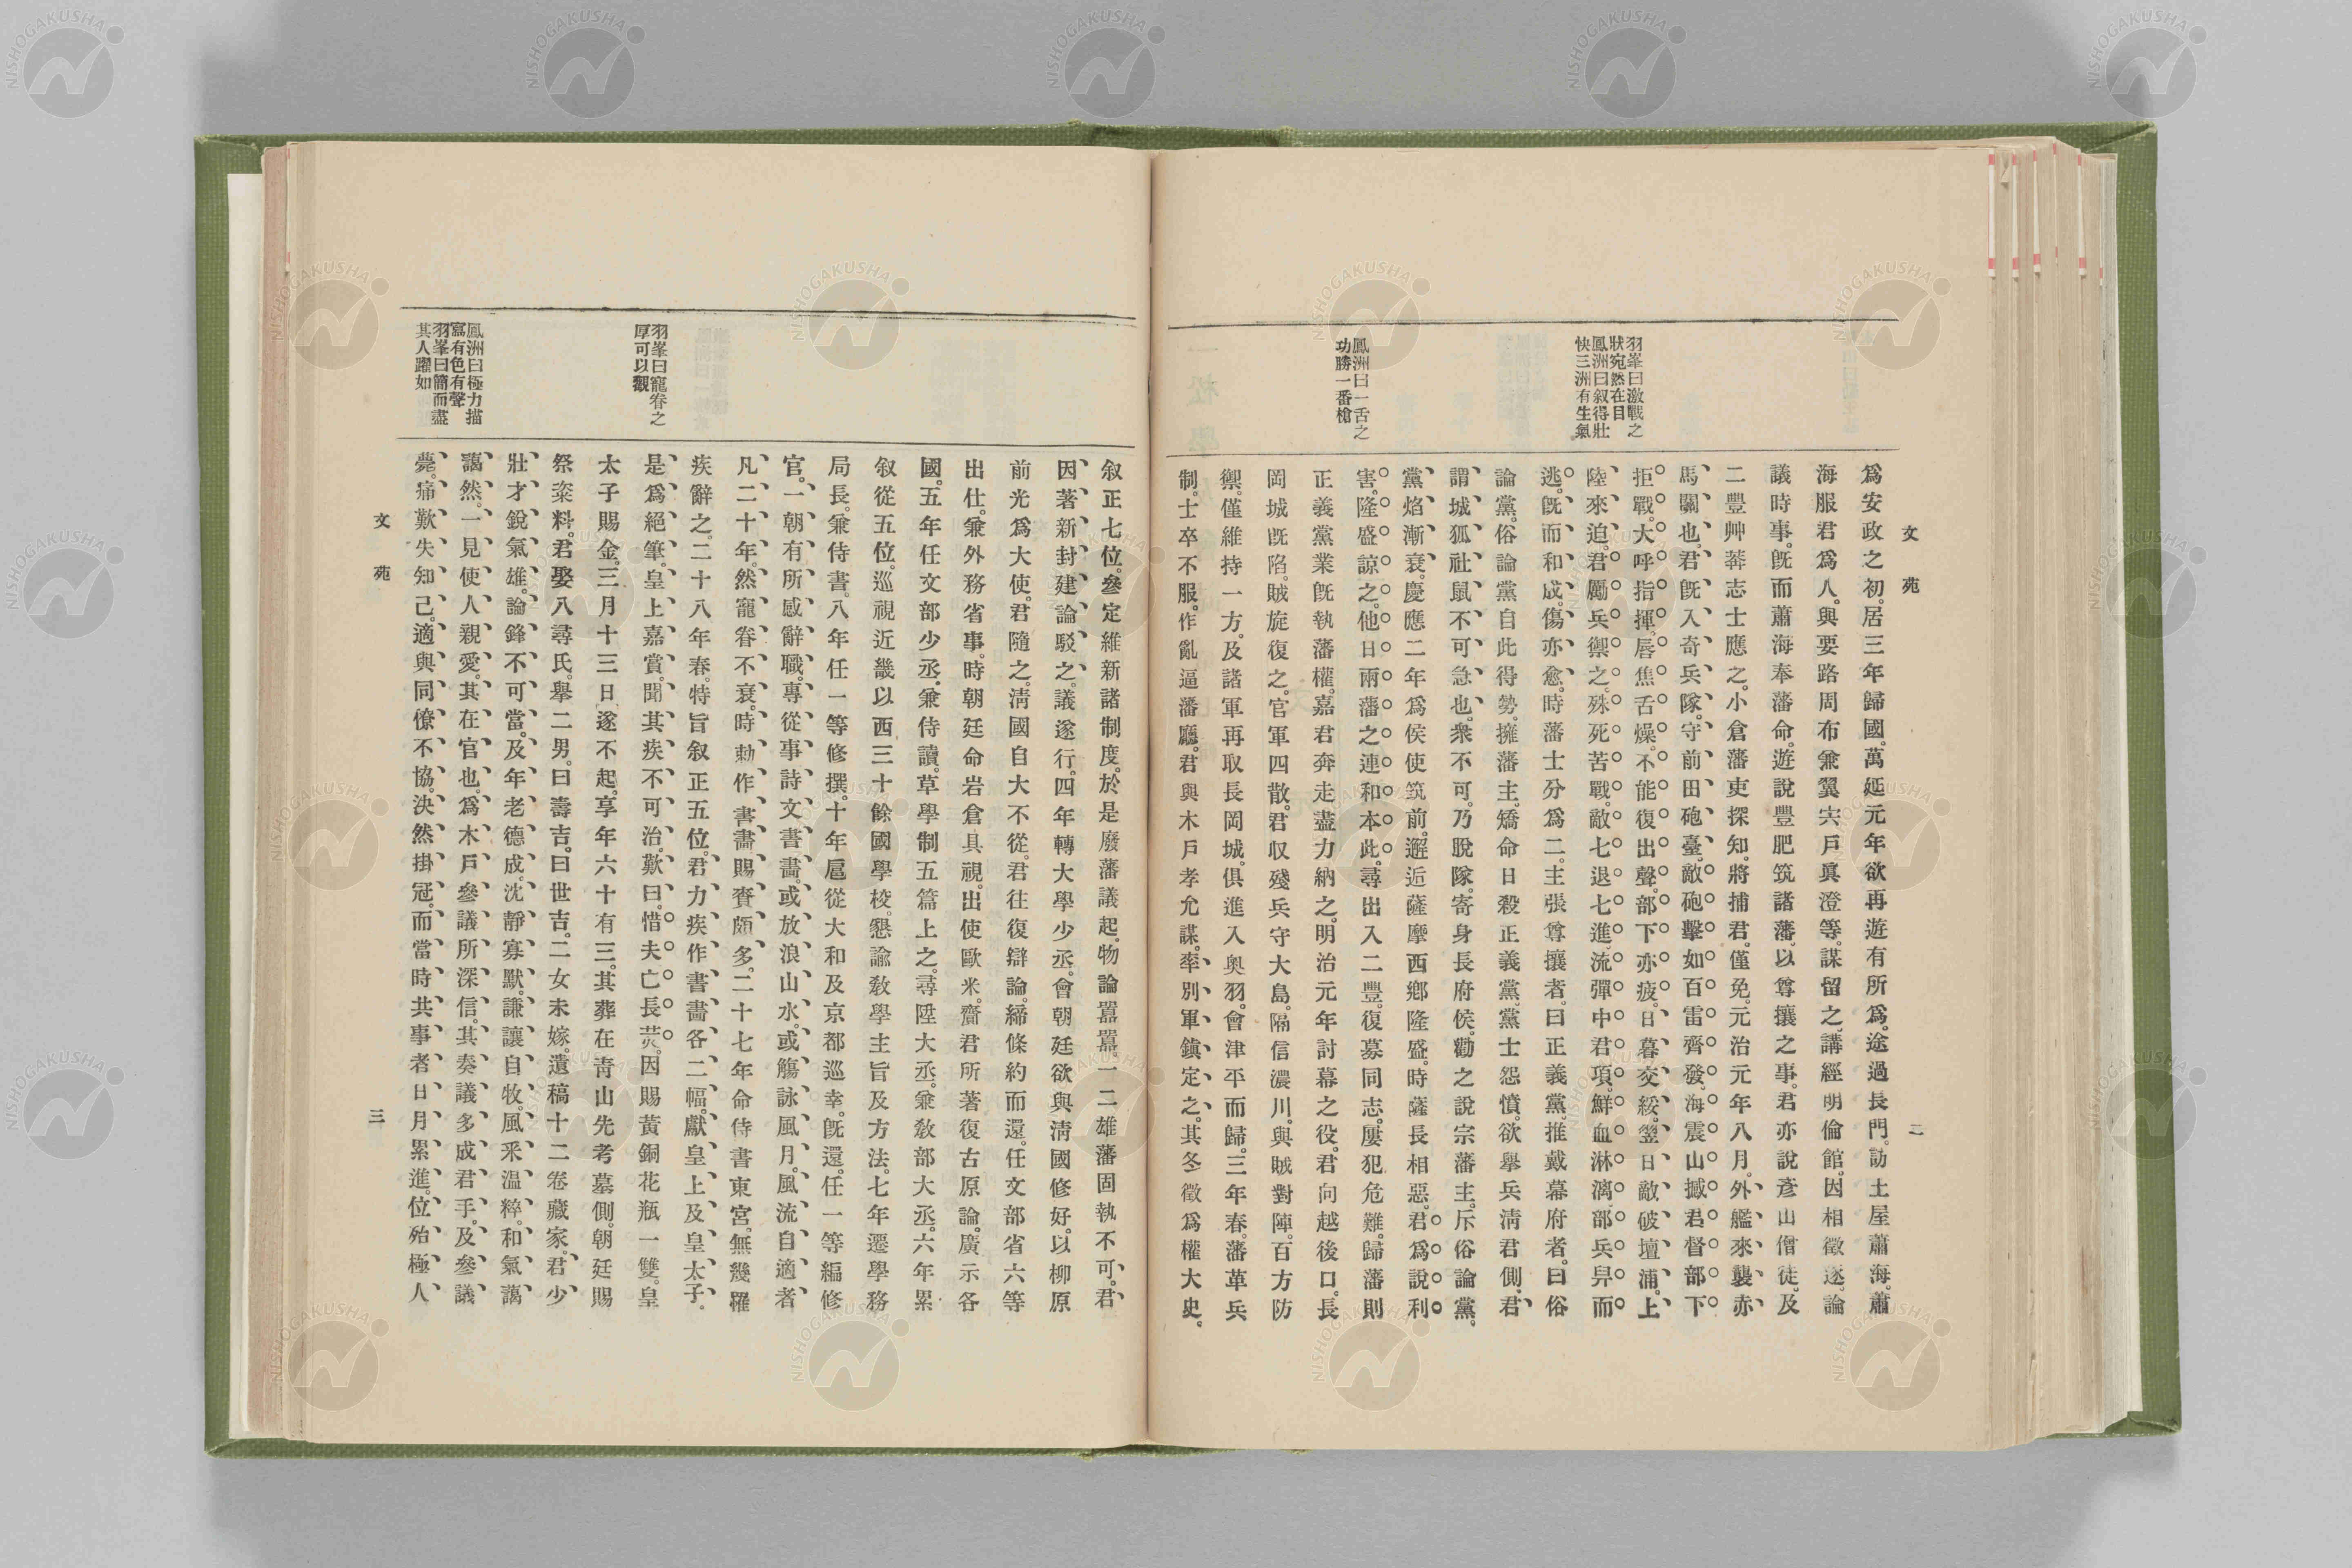 文苑
二
羽峯曰激戰之
狀宛然在目
鳳洲曰叙得壯
快三洲有生氣
鳳洲曰一舌之
功勝一番槍
爲安政之初。居三年歸國。萬延元年欲再遊有所爲。途過長門。訪土屋蕭海。蕭
海服君爲人。與要路周布兼翼宍戶眞澄等。謀留之。講經明倫館。因相徵逐。論
議時事。旣而蕭海奉藩命。遊說豐肥筑諸藩。以尊攘之事。君亦說彥山僧徒。及
二豐艸莽志士應之。小倉藩吏探知。將捕君。僅免。元治元年八月。外艦來襲赤
馬關也。君旣入奇兵隊。守前田砲臺。敵砲擊如百雷齊發。海震山撼。君督部下
拒戰。大呼指揮。唇焦舌燥。不能復出聲。部下亦疲。日暮交綏。翌日敵破壇浦。上
陸來迫。君勵兵禦之。殊死苦戰。敵七退七進。流彈中君項。鮮血淋漓。部兵舁而
逃。旣而和成。傷亦愈。時藩士分爲二。主張尊攘者。曰正義黨。推戴幕府者。曰俗
論黨。俗論黨自此得勢。擁藩主。矯命日殺正義黨。黨士怨憤。欲擧兵淸君側。君
謂城狐社鼠不可急也。衆不可。乃脫隊。寄身長府侯。勸之說宗藩主。斥俗論黨。
黨焰漸衰。慶應二年爲侯使筑前。邂逅薩摩西鄕隆盛。時薩長相惡。君爲說利
害。隆盛諒之。他日兩藩之連和本此。尋出入二豐。復募同志。屢犯危難。歸藩則
正義黨業旣執藩權。嘉君奔走盡力納之。明治元年討幕之役。君向越後口。長
岡城旣陷。賊旋復之。官軍四散。君収殘兵守大島。隔信濃川。與賊對陣。百方防
禦。僅維持一方。及諸軍再取長岡城。俱進入奧羽。會津平而歸。三年春。藩革兵
制。士卒不服。作亂逼藩廳。君與木戶孝允謀。率別軍鎭定之。其冬徵爲權大史。
羽峯曰寵眷之
厚可以觀
鳳洲曰極力描
寫有色有聲
羽峯曰簡而盡
其人躍如
叙正七位。參定維新諸制度。於是廢藩議起。物論囂囂。一二雄藩固執不可。君
因著新封建論駁之。議遂行。四年轉大學少丞。會朝廷欲與淸國修好。以柳原
前光爲大使。君隨之。淸國自大不從。君往復辯論。締條約而還。任文部省六等
出仕。兼外務省事。時朝廷命岩倉具視。出使歐米。齎君所著復古原論。廣示各
國。五年任文部少丞。兼侍讀。草學制五篇上之。尋陞大丞。兼敎部大丞。六年累
叙從五位。巡視近畿以西三十餘國學校。懇諭敎學主旨及方法。七年遷學務
局長。兼侍書。八年任一等修撰。十年扈從大和及京都巡幸。旣還。任一等編修
官。一朝有所感辭職。專從事詩文書畵。或放浪山水。或觴詠風月。風流自適者
凡二十年。然寵眷不衰。時勅作書畵。賜賚頗多。二十七年命侍書東宮。無幾罹
疾辭之。二十八年春。特旨叙正五位。君力疾作書畵各二幅。獻皇上及皇太子。
是爲絕筆。皇上嘉賞。聞其疾不可治。歎曰。惜夫亡長茨。因賜黃銅花瓶一雙。皇
太子賜金。三月十三日遂不起。享年六十有三。其葬在靑山先考墓側。朝廷賜
祭粢料。君娶八尋氏。擧二男。曰壽吉。曰世吉。二女未嫁。遺稿十二卷藏家。君少
壯才銳氣雄。論鋒不可當。及年老德成。沈靜寡默。謙讓自牧。風釆温粹。和氣藹
藹然。一見使人親愛。其在官也。爲木戶參議所深信。其奏議多成君手。及參議
薨。痛歎失知己。適與同僚不協。決然掛冠。而當時共事者日月累進。位殆極人
文苑
三